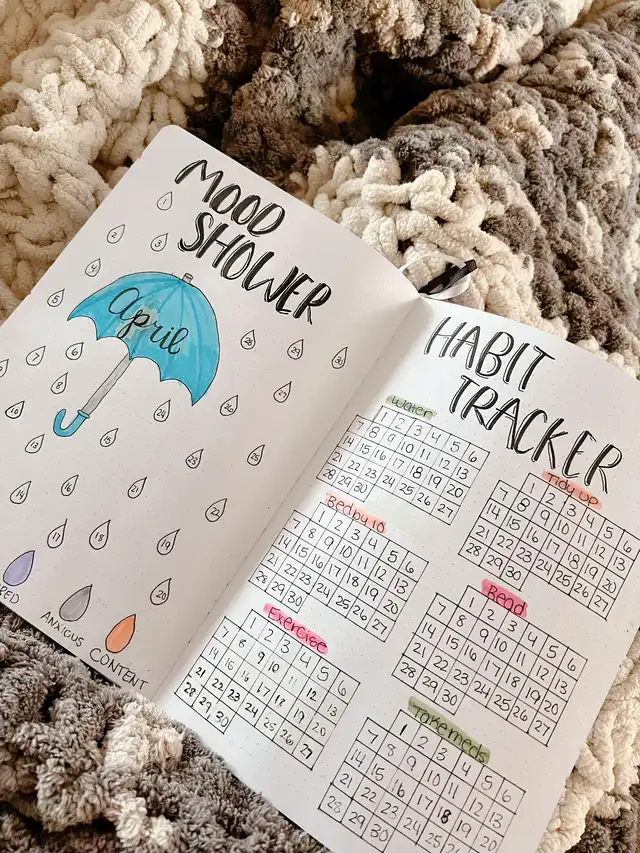 MOOD
SHOWER
1
2 3
4
5
April
28 29 30
7 6
8
27
10
24 26
13 15
23 25
14 16 21
22
17 18
19
20
ANXIOUS
CONTENT
HABIT
TRACKER
Water
1 2 3 4 5 6
7 8 9 10 11 12 13
14 15 16 17 18 19 20
21 22 23 24 25 26 27
28 29 30
Tidy up
1 2 3 4 5 6
7 8 9 10 11 12 13
14 15 16 17 18 19 20
21 22 23 24 25 26 27
28 29 30
Bed by 10
1 2 3 4 5 6
7 8 9 10 11 12 13
14 15 16 17 18 19 20
21 22 23 24 25 26 27
28 29 30
Read
1 2 3 4 5 6
7 8 9 10 11 12 13
14 15 16 17 18 19 20
21 22 23 24 25 26 27
28 29 30
Exercise
1 2 3 4 5 6
7 8 9 10 11 12 13
14 15 16 17 18 19 20
21 22 23 24 25 26 27
28 29 30
Take meds
1 2 3 4 5 6
7 8 9 10 11 12 13
14 15 16 17 18 19 20
21 22 23 24 25 26
28 29 30